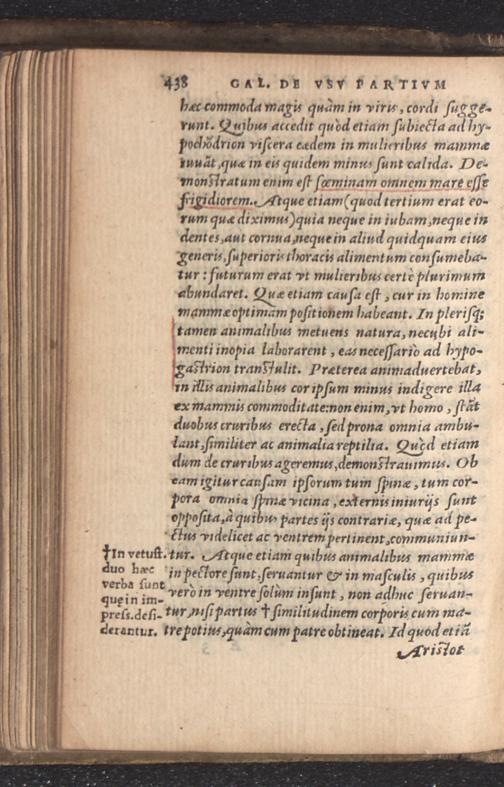 438 GAL. DE VSV PARTIVM
hæc commoda magis quàm in viris, cordi sugge-
runt. Quibus accedit quòd etiam subiecta ad hy-
pochõdrion viscera eædem in mulieribus mammæ
iuuãt, quæ in eis quidem minus sunt calida. De-
monstratum enim est fœminam omnem mare esse
frigidiorem. Atque etiam (quod tertium erat eo-
rum quæ diximus) quia neque in iubam, neque in
dentes, aut cornua, neque in aliud quidquam eius
generis, superioris thoracis alimentum consumeba-
tur : futurum erat vt mulieribus certè plurimum
abundaret. Quæ etiam causa est, cur in homine
mammæ optimam positionem habeant. In plerisq;
tamen animalibus metuens natura, necubi ali-
menti inopia laborarent, eas necessariò ad hypo-
gastrion transtulit. Præterea animaduertebat,
in illis animalibus cor ipsum minus indigere illa
ex mammis commoditate: non enim, vt homo, stãt
duobus cruribus erecta, sed prona omnia ambu-
lant, similiter ac animalia reptilia. Quòd etiam
dum de cruribus ageremus, demonstrauimus. Ob
eam igitur causam ipsorum tum spinæ, tum cor-
pora omnia spinæ vicina, externis iniurijs sunt
opposita, à quibus partes ijs contrariæ, quæ ad pe-
ctus videlicet ac ventrem pertinent, communiun-
tur. Atque etiam quibus animalibus mammæ
in pectore sunt, seruantur & in masculis, quibus
verò in ventre solùm insunt, non adhuc seruan-
tur, nisi partus † similitudinem corporis cum ma-
tre potius, quàm cum patre obtineat. Id quod etiã
Aristot
†In vetust.
duo hæc
verba sunt
quę in im-
press. desi-
derantur.